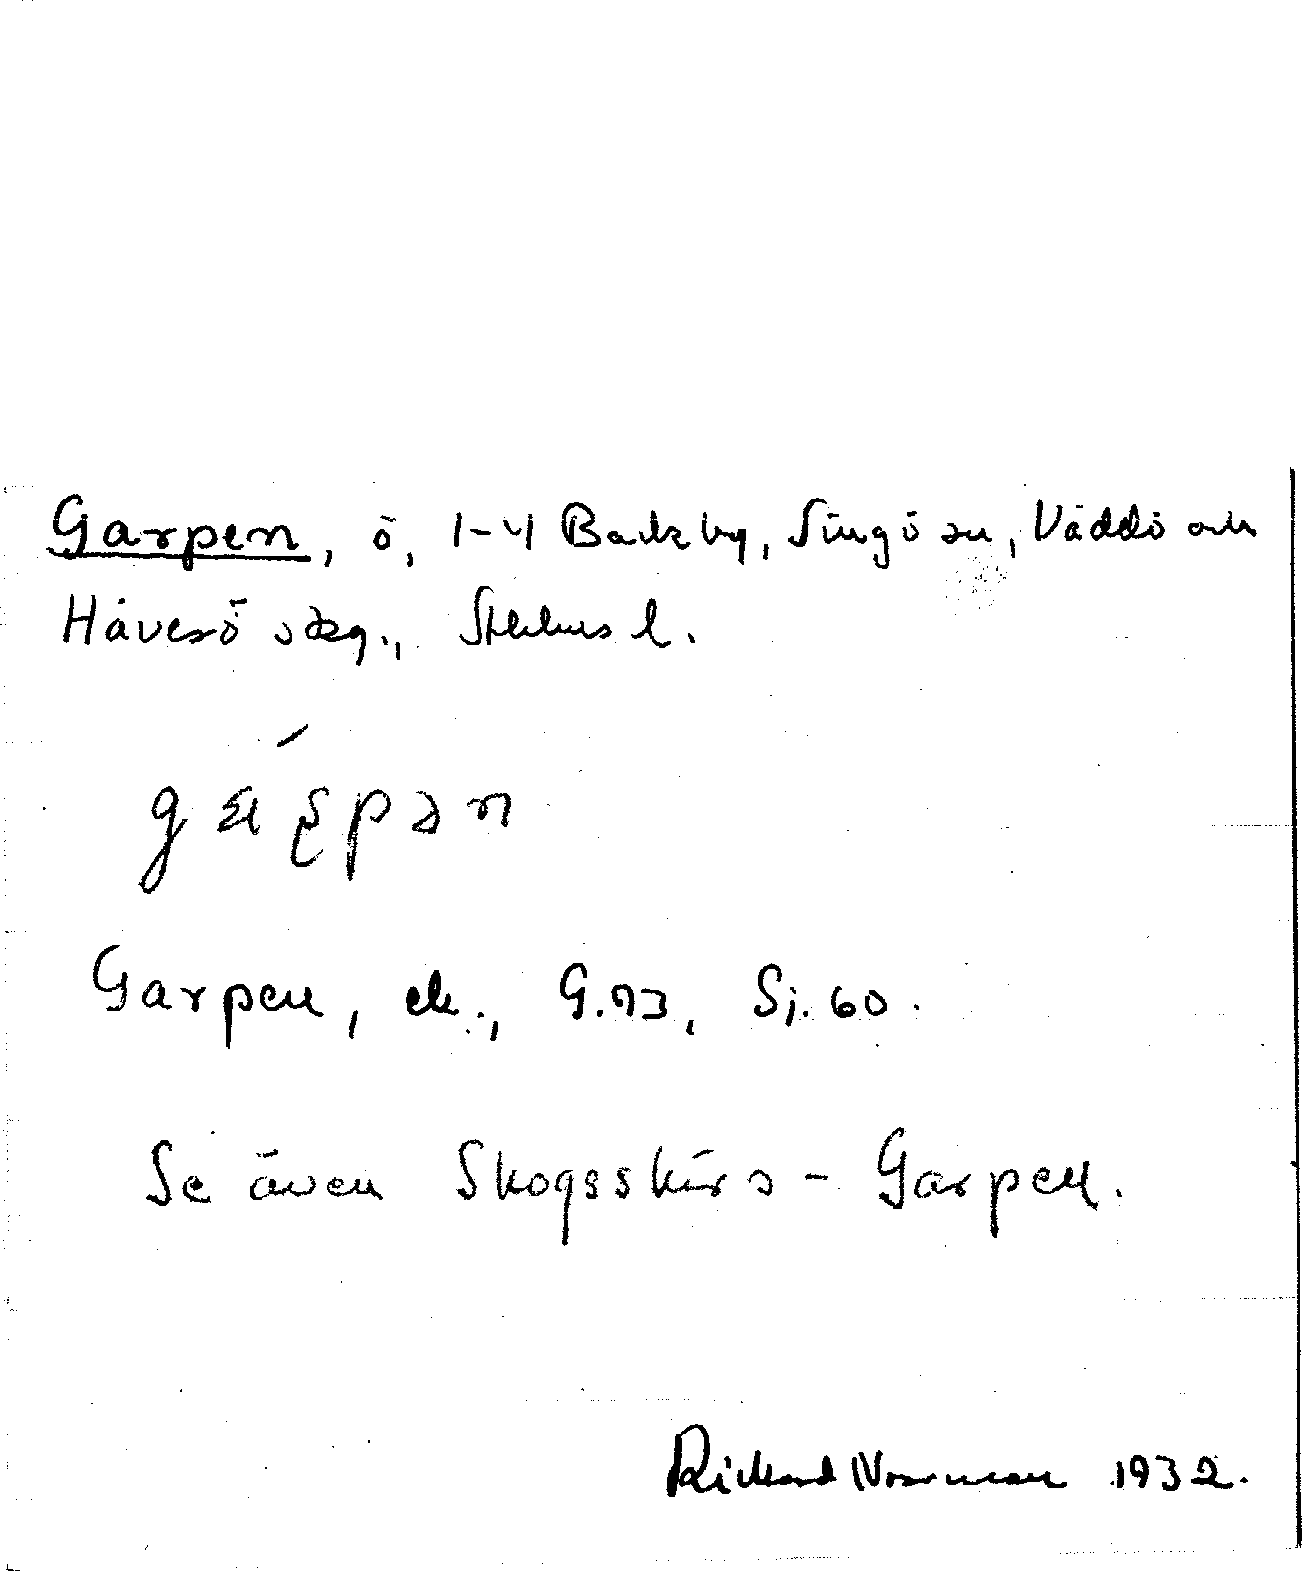 Garpen, ö, 1-4 Backby, Singö sn, Väddö och
Häverö skg., Sthlms l.
Garpen, ek., G.73, Si. 60.
Se även Skogsskärs-Garpen.
Rickard Norrman 1932.